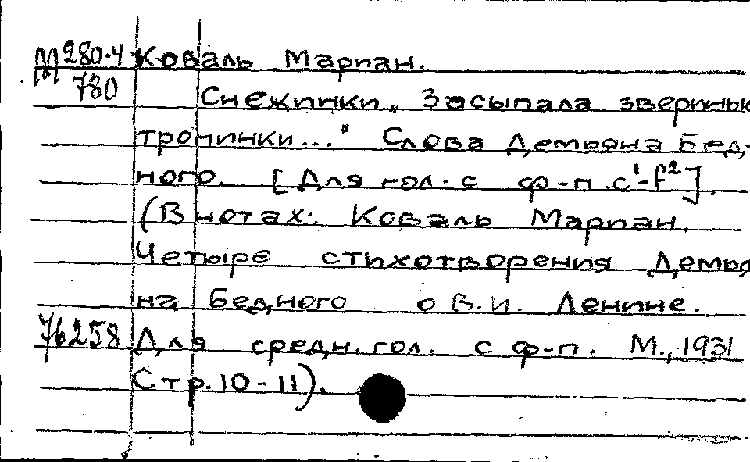 М280.4 Коваль Мариан.
780 Снежинки „Засыпала звериные
тропинки..." Слова Демьяна Бед-
ного. [Для гол. с ф-п. c¹-f²].
(В нотах: Коваль Мариан.
Четыре стихотворения Демья
на Бедного о В.И. Ленине.
76258 Для средн. гол. с ф-п. М., 1931
Стр. 10-11).